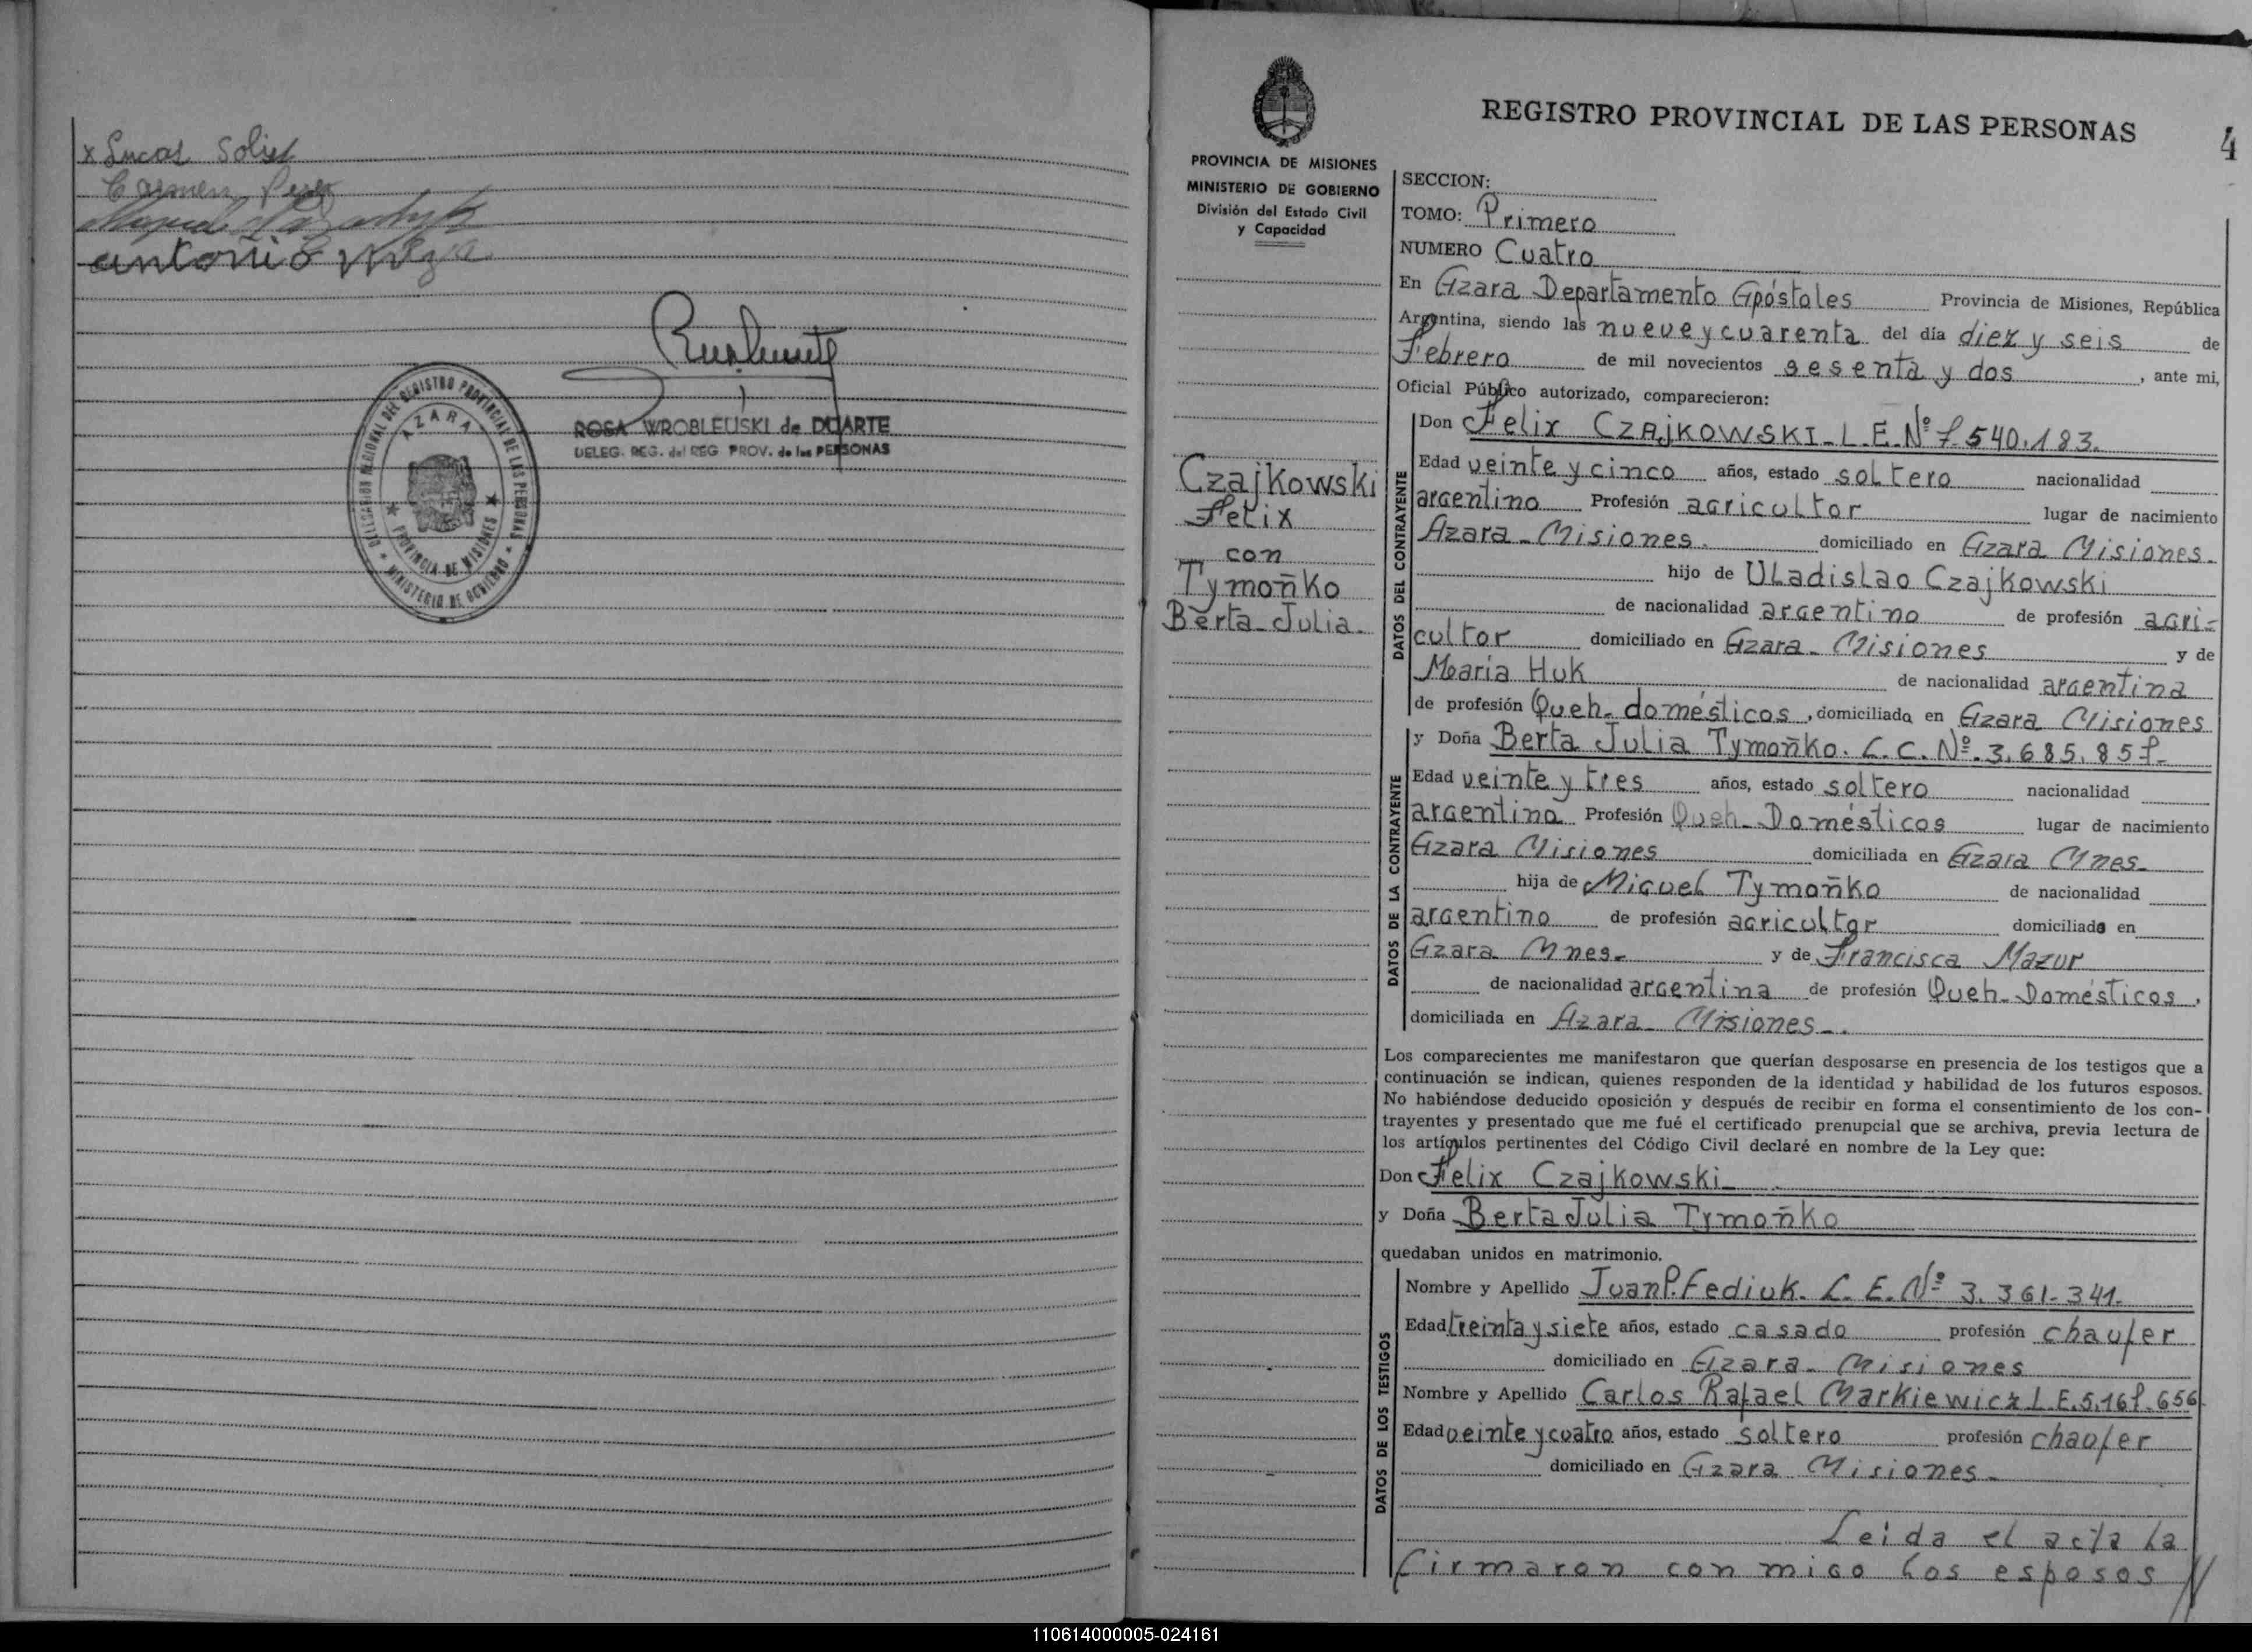 x Lucas Solis
Carmen Perez
antonio
ROSA WROBLEUSKI de DUARTE
DELEG. REG. del REG PROV. de las PERSONAS
DELEGACION REGIONAL DEL REGISTRO PROVINCIAL DE LAS PERSONAS
MINISTERIO DE GOBIERNO
AZARA
PROVINCIA DE MISIONES
REGISTRO PROVINCIAL DE LAS PERSONAS
4
PROVINCIA DE MISIONES
MINISTERIO DE GOBIERNO
División del Estado Civil
y Capacidad
Czajkowski
Felix
con
Tymoñko
Berta Julia.
SECCION:
TOMO: Primero
NUMERO Cuatro
En Azara Departamento Apóstoles Provincia de Misiones, República
Argentina, siendo las nueve y cuarenta del día diez y seis de
Febrero de mil novecientos sesenta y dos, ante mi,
Oficial Público autorizado, comparecieron:
DATOS DEL CONTRAYENTE
Don Felix CZAJKOWSKI-L.E.Nº 7.540.183.
Edad veinte y cinco años, estado soltero nacionalidad
argentino Profesión agricultor lugar de nacimiento
Azara - Misiones. domiciliado en Azara Misiones.
hijo de Uladislao Czajkowski
de nacionalidad argentino de profesión agri-
cultor domiciliado en Azara - Misiones y de
María Huk de nacionalidad argentina
de profesión Queh. domésticos, domiciliada en Azara Misiones
DATOS DE LA CONTRAYENTE
y Doña Berta Julia Tymoñko. L.C. Nº. 3.685.857-
Edad veinte y tres años, estado soltero nacionalidad
argentina Profesión Queh. Domésticos lugar de nacimiento
Azara Misiones domiciliada en Azara Mnes.
hija de Miguel Tymoñko de nacionalidad
argentino de profesión agricultor domiciliado en
Azara Mnes. y de Francisca Mazur
de nacionalidad argentina de profesión Queh. Domésticos,
domiciliada en Azara - Misiones-.
Los comparecientes me manifestaron que querían desposarse en presencia de los testigos que a
continuación se indican, quienes responden de la identidad y habilidad de los futuros esposos.
No habiéndose deducido oposición y después de recibir en forma el consentimiento de los con-
trayentes y presentado que me fué el certificado prenupcial que se archiva, previa lectura de
los artículos pertinentes del Código Civil declaré en nombre de la Ley que:
Don Felix Czajkowski
y Doña Berta Julia Tymoñko
quedaban unidos en matrimonio.
DATOS DE LOS TESTIGOS
Nombre y Apellido Juan P. Fediuk. L. E. Nº 3.361.341.
Edad treinta y siete años, estado casado profesión chaufer
domiciliado en Azara - Misiones
Nombre y Apellido Carlos Rafael Markiewicz L.E. 5.167.656
Edad veinte y cuatro años, estado soltero profesión chaufer
domiciliado en Azara Misiones-
Leida el acta la
firmaron con migo los esposos //
110614000005-024161